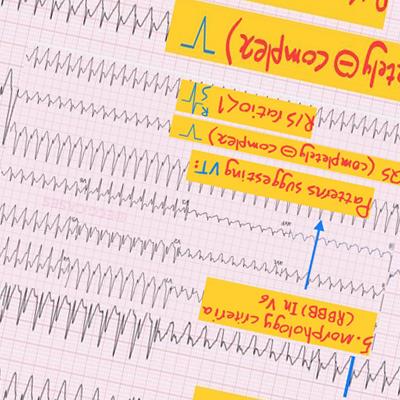 5. morphology criteria
(RBBB) In V6
Patterns suggesting VT:
QS (completely ⊖ complex)
R/S ratio<1
R
S
etely ⊖ complex)